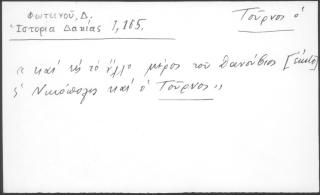 Φωτεινοῦ, Δ.
Ἱστορία Δακίας 1,165.
Τοῦρνος ὁ
« καὶ εἰς τὸ ἄλλο μέρος τοῦ Δανούβιος
ἡ Νικόπολις καὶ ὁ Τοῦρνος »